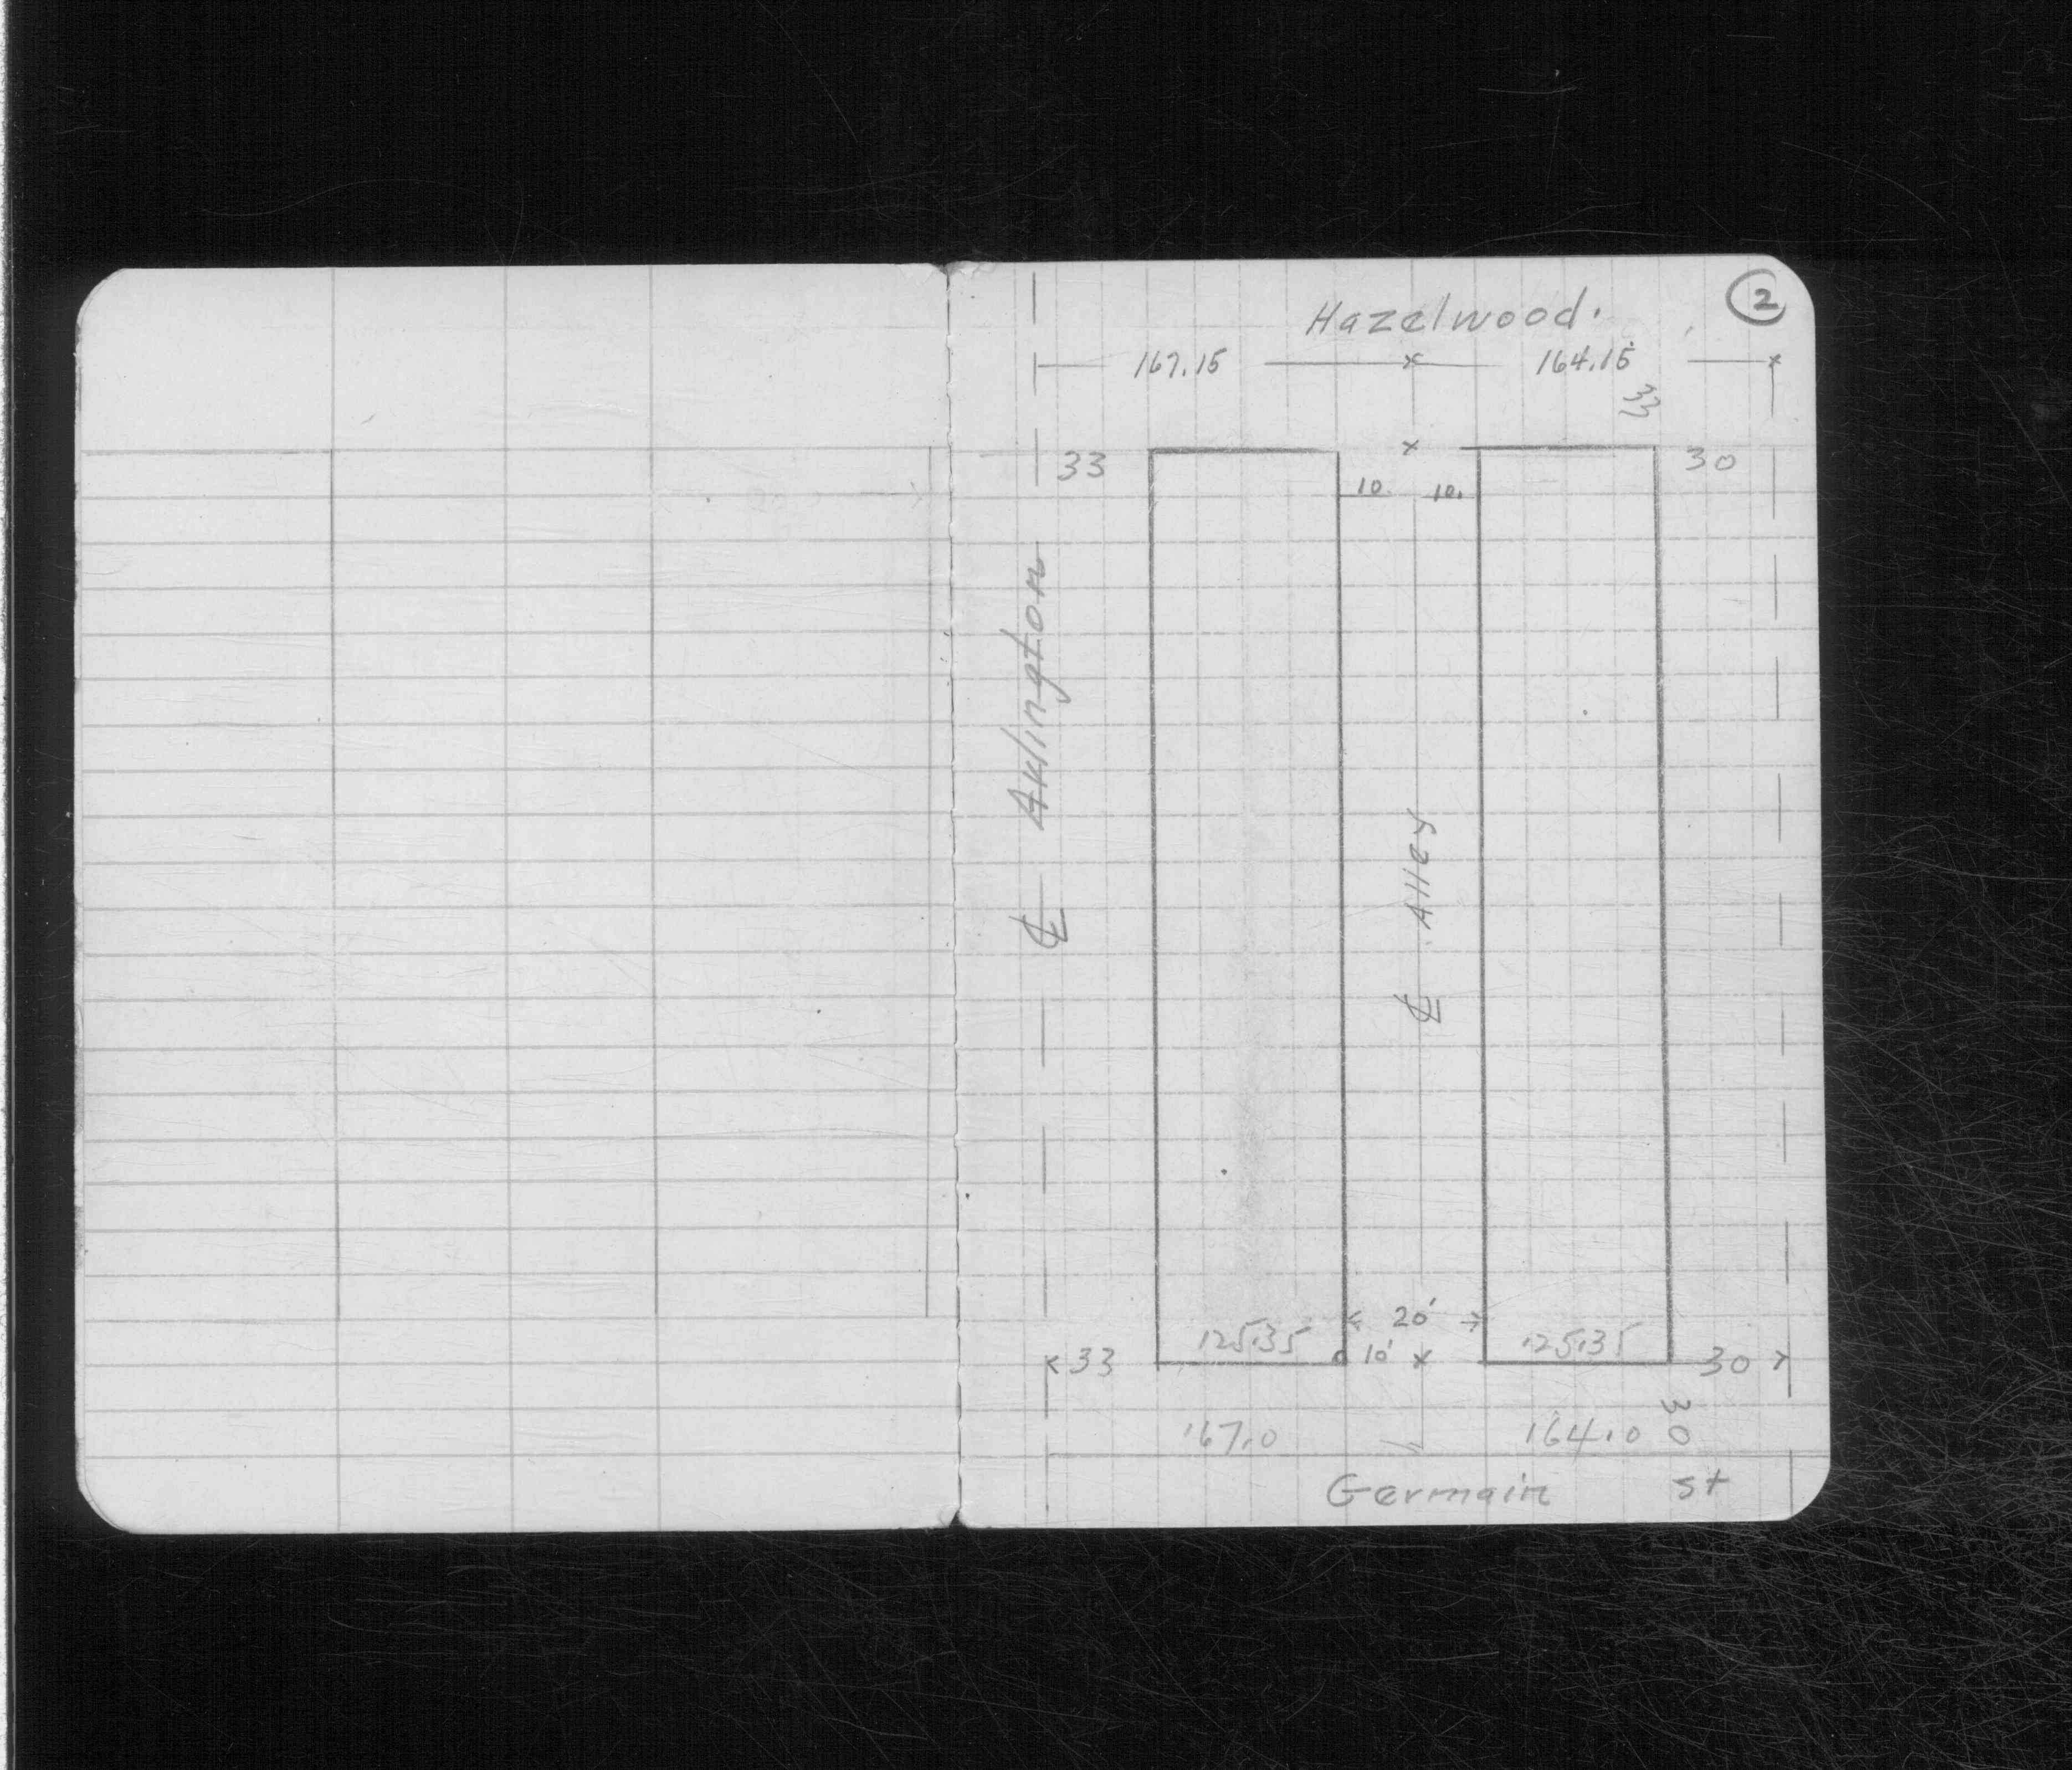 2
Hazelwood.
167.15 x 164.15 x
33
33 x 30
10. 10.
℄ Arlington
℄ Alley
20'
125.35 10' x 125.35
33 30
30
167.0 164.0
Germain St